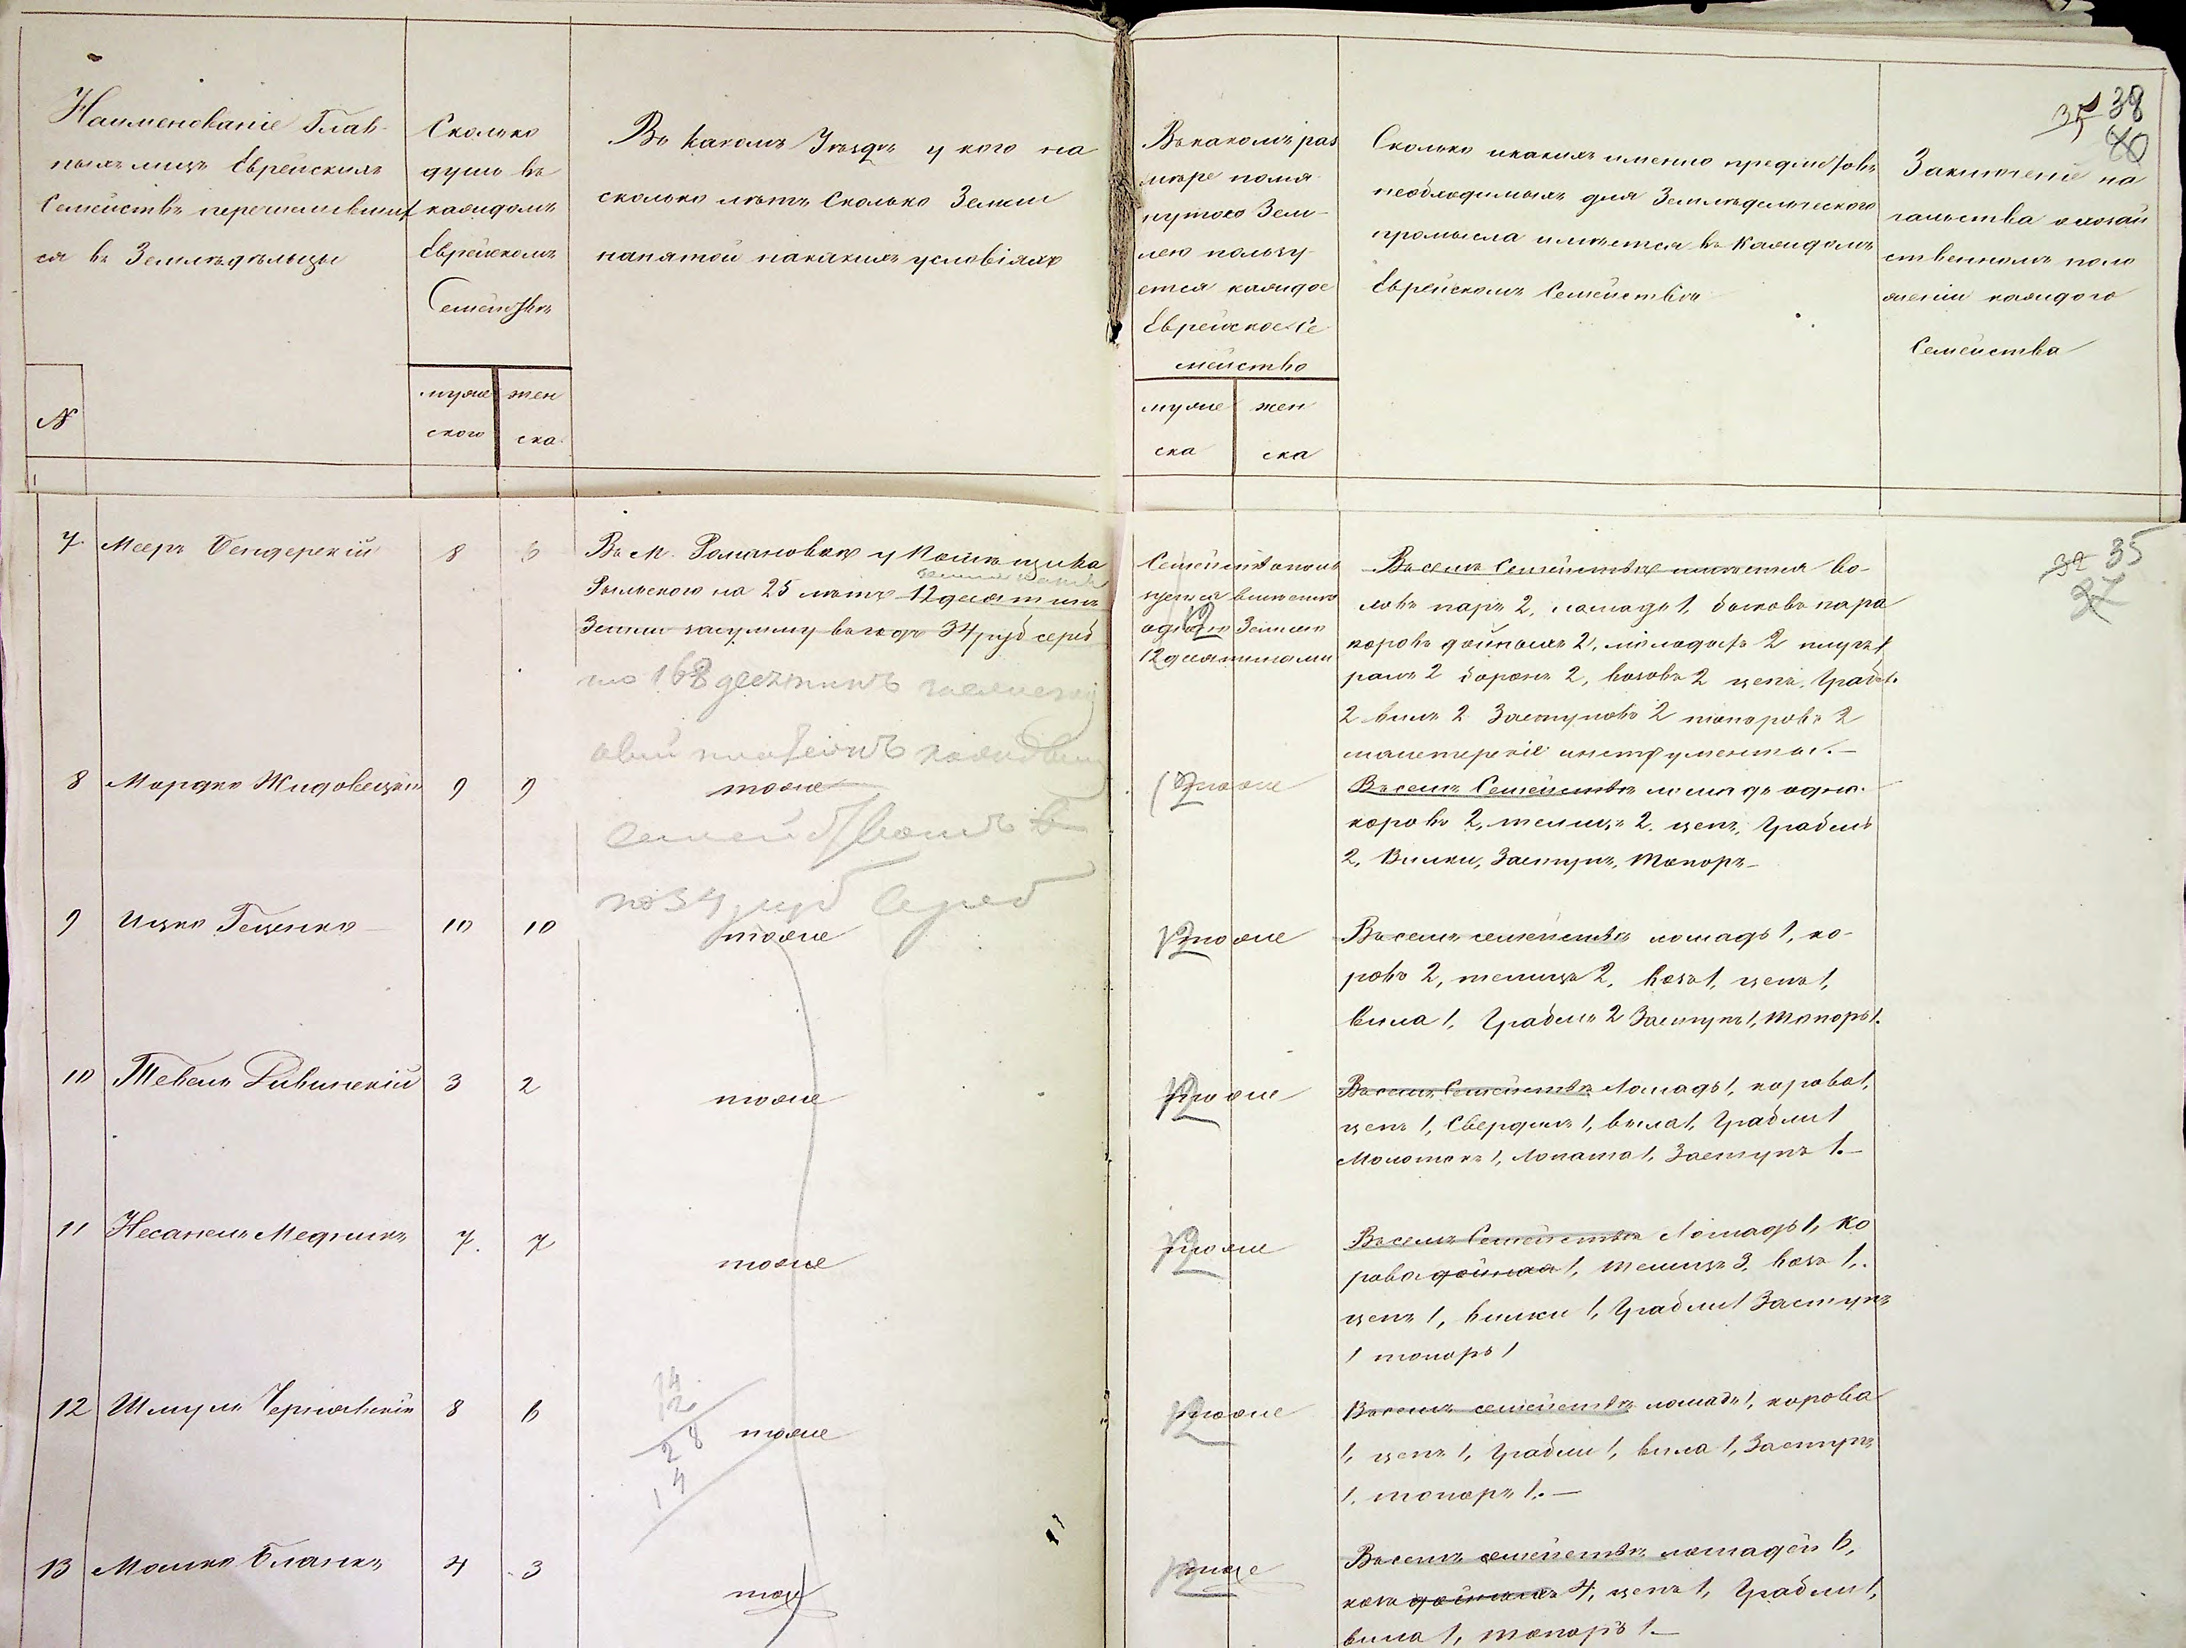 38
35
40
Наименованіе Глав-
ныхъ лицъ Еврейскихъ
Семействъ перечисливших
ся въ Земледѣльцы
Сколько
душъ въ
каждомъ
Еврейскомъ
Семействѣ
Въ какомъ Уѣздѣ у кого на
сколько лѣтъ Сколько Земли
нанятой на какихъ условіяхъ
Въ какомъ раз
мѣре помя
нутою Зем-
лею пользу-
ется каждое
Еврейское Се
мейство
Сколько и какихъ именно предметовъ
необходимыхъ для Земледельческого
промысла имѣется въ Каждомъ
Еврейскомъ Семействѣ
Заключеніе на
чальства о хозяй
ственномъ поло
женіи каждого
Семейства
№
муже
ского
жен
ска
муже
ска
жен
ска
7 Мееръ Бендерскій 8 6
Въ М. Романовкѣ у Помѣщика
Рыльского на 25 лѣтъ 12 десятинъ
Земли за сумму въ годъ 34 руб сереб
168 десятинъ
семействомъ
по 34 руб Сереб
12
одною Землею
12 десятинами
Въ семъ Семействѣ имѣется во-
ловъ паръ 2, лошадь 1, быковъ пара
коровъ дойныхъ 2, молодыхъ 2 плугъ 1
ралъ 2 боронъ 2, возовъ 2 цепъ, Граблей
2 вилъ 2 Заступовъ 2 топоровъ 2
мастерскіе инструменты.—
35
32
37
8 Мордко Жидовецкій 9 9 тоже 12 тоже
Въ семъ Семействѣ лошадь одна
коровъ 2, телицъ 2, цепъ, Граблей
2, Вилки, Заступъ, Топоръ—
9 Ицко Геценко 10 10 тоже 12 тоже
Въ семъ семействѣ лошадь 1, ко-
ровъ 2, телицъ 2, возъ 1, цепъ 1,
вила 1, Граблей 2 Заступъ 1, Топоръ 1.
10 Тевель Ривинскій 3 2 тоже 12 тоже
Въ семъ Семействѣ Лошадь 1, корова 1,
цепъ 1, Свердилъ 1, вила 1, Грабли 1
Молотокъ 1, Лопата 1, Заступъ 1.—
11 Несанель Медникъ 7. 7 тоже 12 тоже
Въ семъ Семействѣ Лошадь 1, Ко
рова дойная 1, Телицъ 3, возъ 1,
цепъ 1, вилки 1, Грабли 1 Заступъ
1 топоръ 1
12 Шмуль Чернявскій 8 6 тоже 12 тоже
14
12
28
14
Въ семъ семействѣ лошадь 1, корова
1, цепъ 1, Грабли 1, вила 1, Заступъ
1, топоръ 1.—
13 Мошко Бланкъ 4 3 тоже 12 тоже
Въ семъ семействѣ лошадей 6,
козъ дойныхъ 4, цепъ 1, Грабли 1,
вила 1, топоръ 1.—